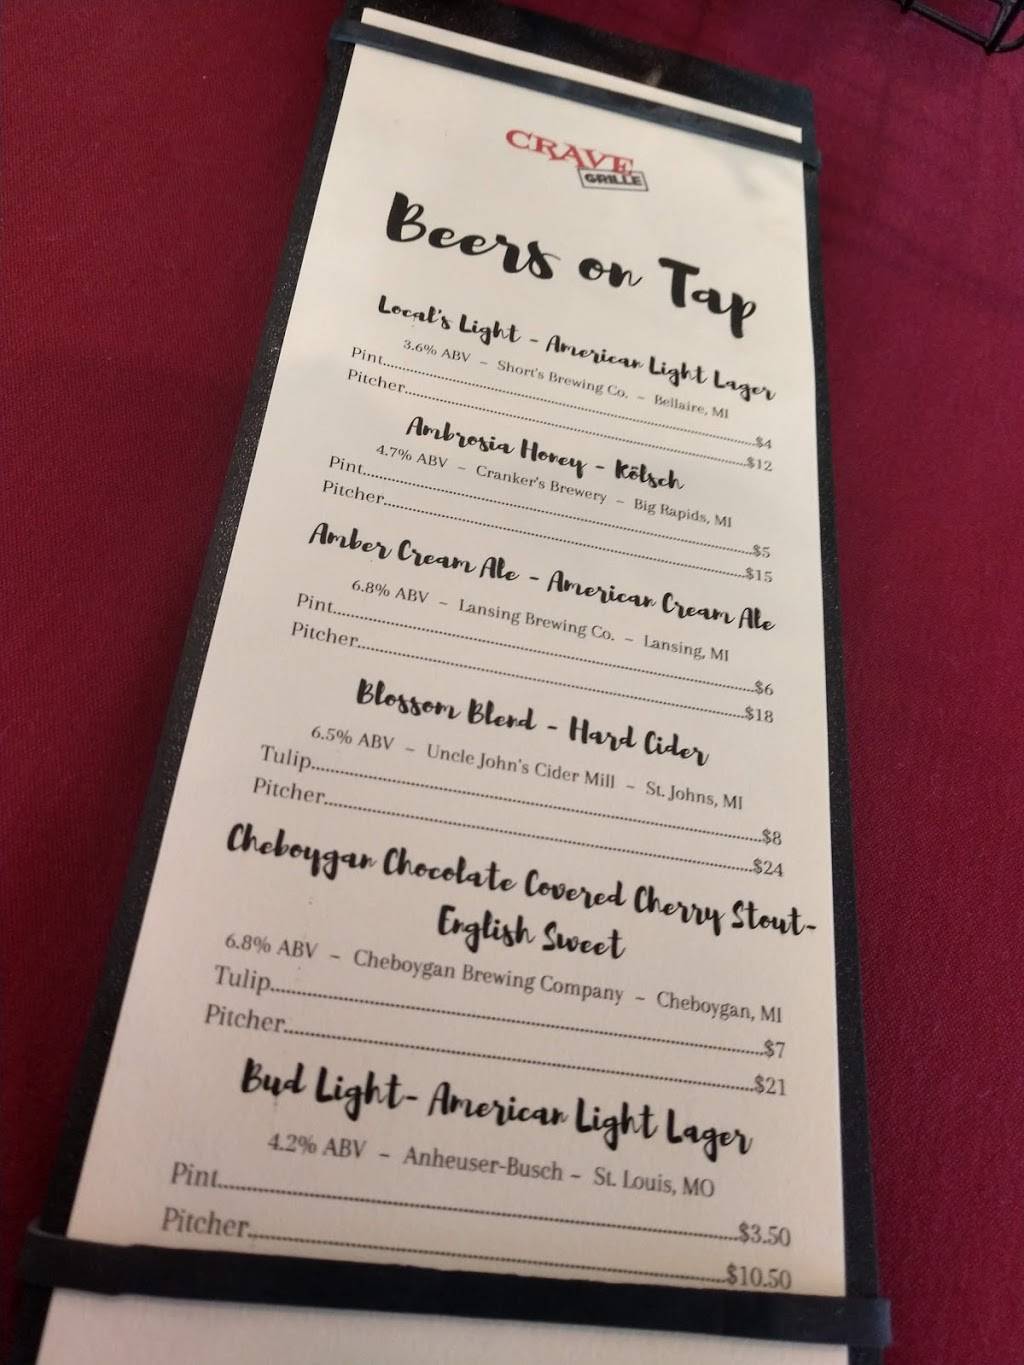 CRAVE
GRILLE
Beers on Tap
Local's Light - American Light Lager
3.6% ABV – Short's Brewing Co. – Bellaire, MI
Pint....................$4
Pitcher....................$12
Ambrosia Honey - Kölsch
4.7% ABV – Cranker's Brewery – Big Rapids, MI
Pint....................$5
Pitcher....................$15
Amber Cream Ale - American Cream Ale
6.8% ABV – Lansing Brewing Co. – Lansing, MI
Pint....................$6
Pitcher....................$18
Blossom Blend - Hard Cider
6.5% ABV – Uncle John's Cider Mill – St. Johns, MI
Tulip....................$8
Pitcher....................$24
Cheboygan Chocolate Covered Cherry Stout-
English Sweet
6.8% ABV – Cheboygan Brewing Company – Cheboygan, MI
Tulip....................$7
Pitcher....................$21
Bud Light- American Light Lager
4.2% ABV – Anheuser-Busch – St. Louis, MO
Pint....................$3.50
Pitcher....................$10.50